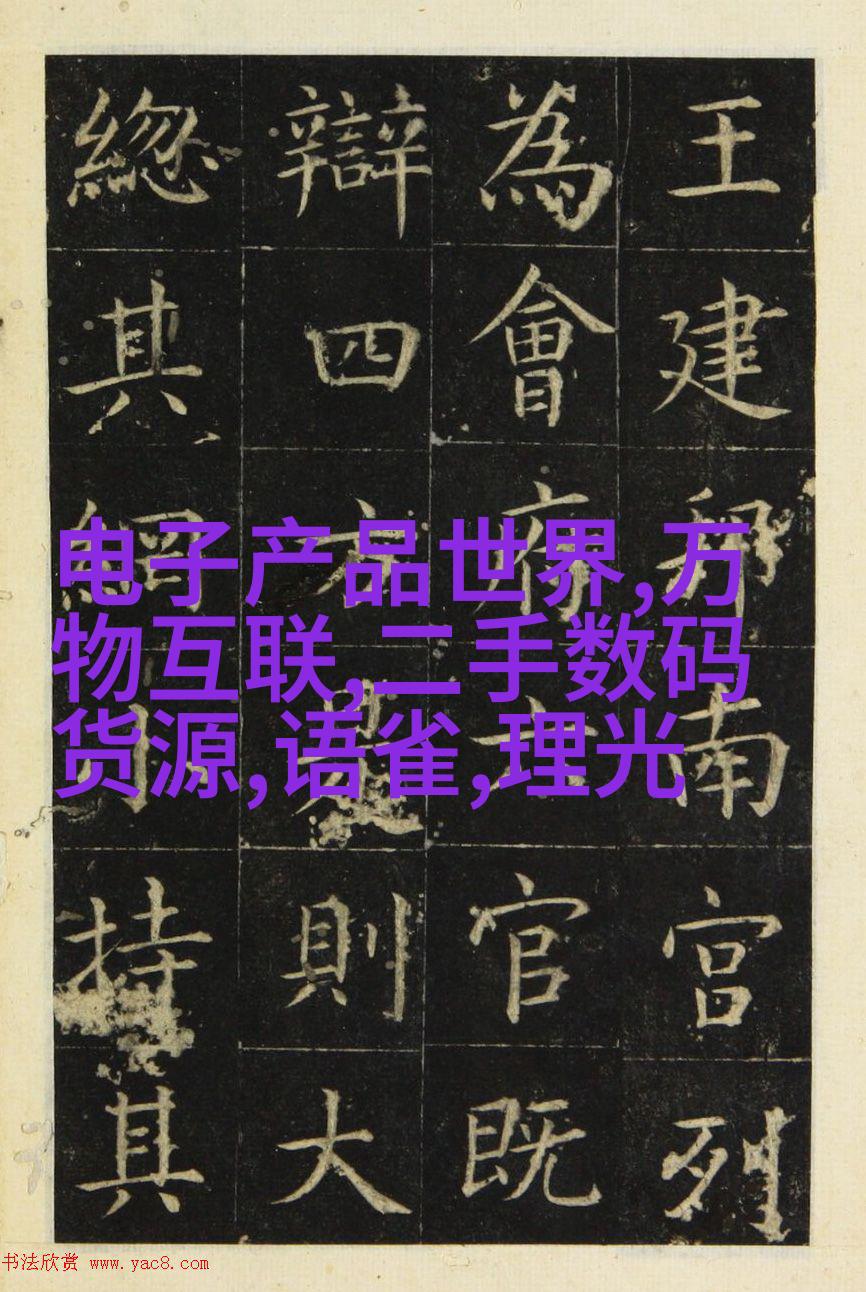 王建邦南宮列
為會府官既
辯四方則大
總其綱小持其
电子产品世界,万
物互联,二手数码
货源,语雀,理光
书法欣赏 www.yac8.com